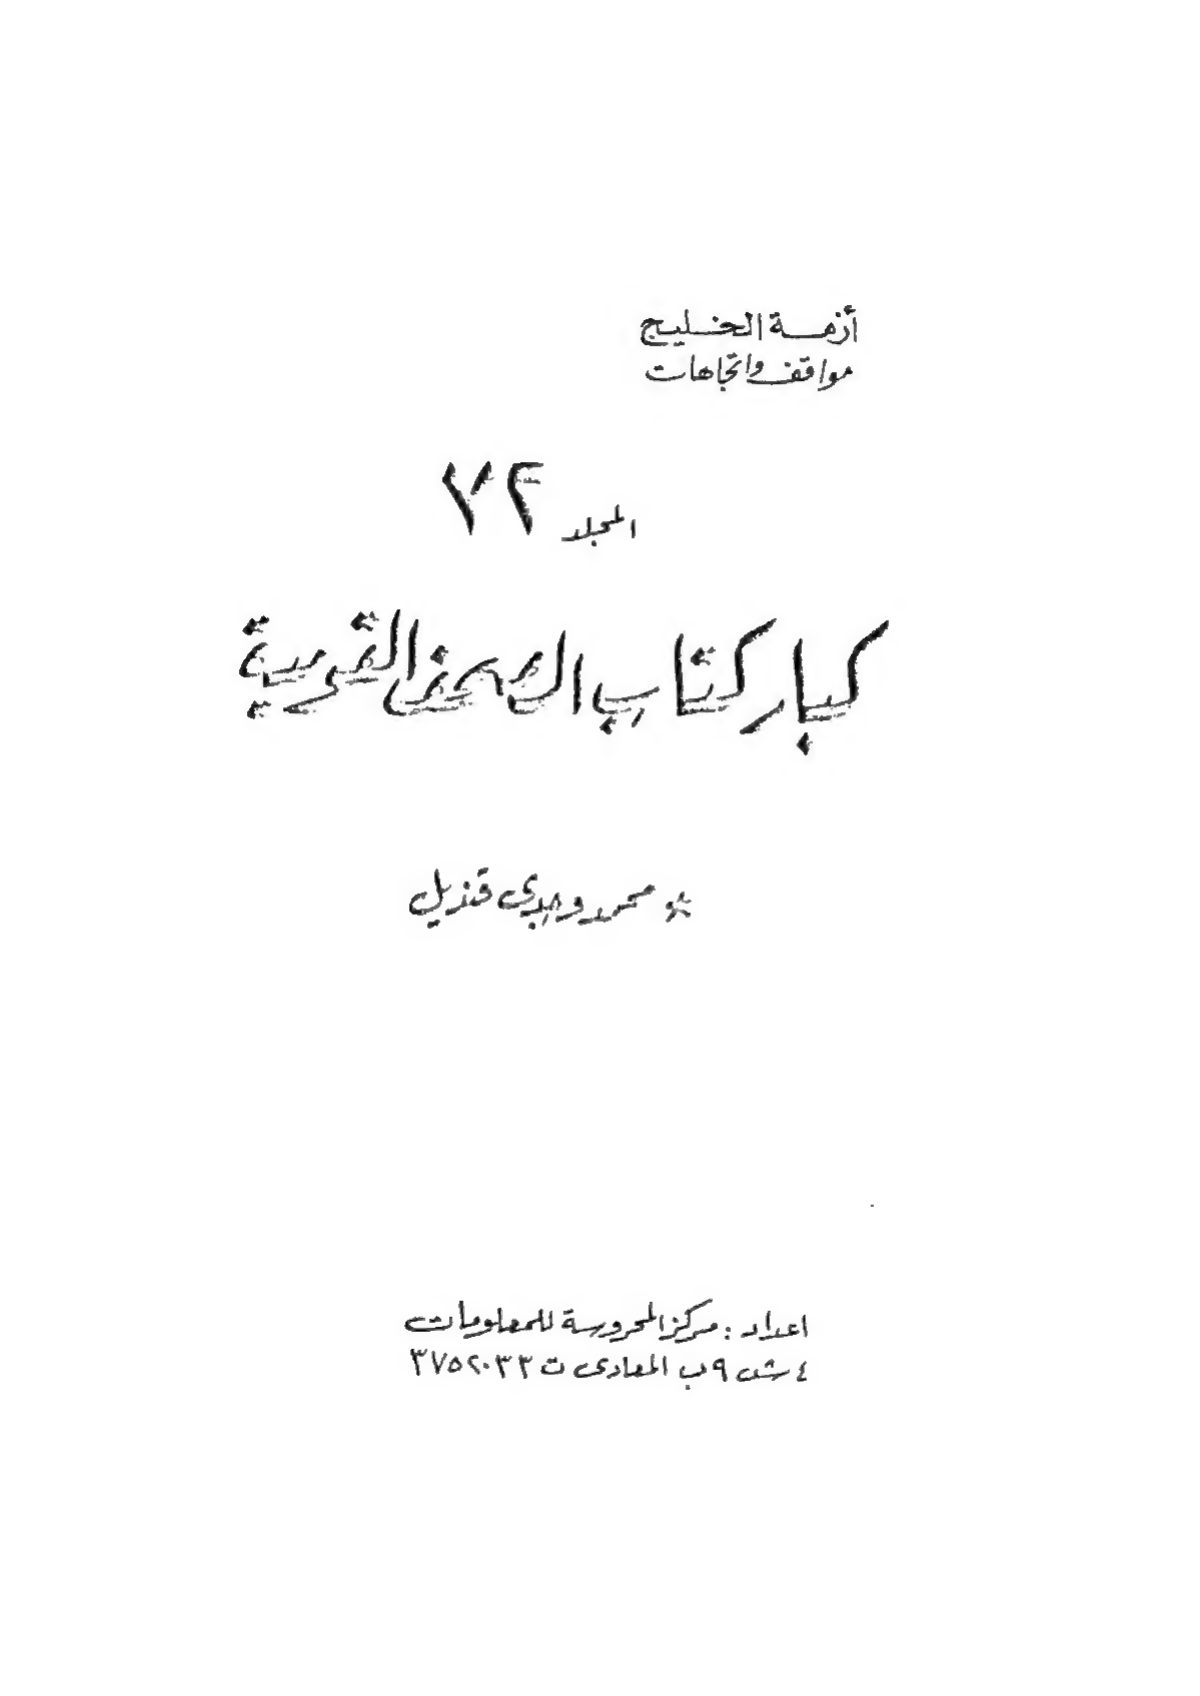 أزمة الخليج
مواقف واتجاهات
المجلد ٧٢
كبار كتاب الصحف القومية
* محمد وجدى قنديل
اعداد : مركز المحروسة للمعلومات
٤ ش ٩ب المعادى ت ٣٧٥٢٠٣٣